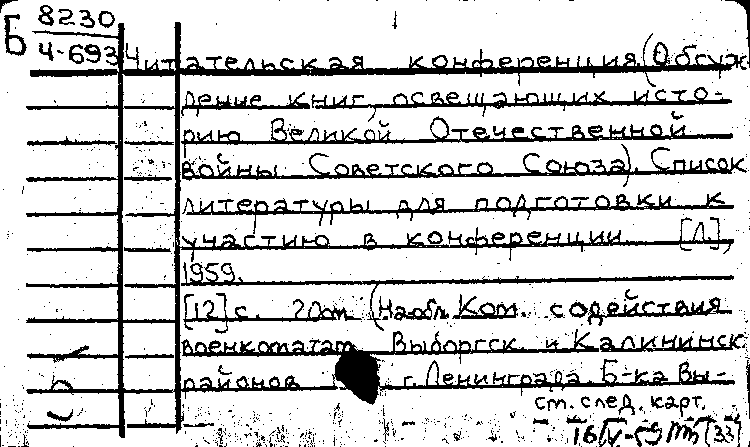 Б 8230
4-693
Читательская конференция (Обсуж-
дение книг, освещающих исто-
рию Великой Отечественной
войны Советского Союза). Список
литературы для подготовки к
участию в конференции. [Л.],
1959.
[12] с. 20см. (На обл. Ком. содействия
военкоматам Выборгск. и Калининск
районов г. Ленинграда. Б-ка Вы-
см. след. карт.